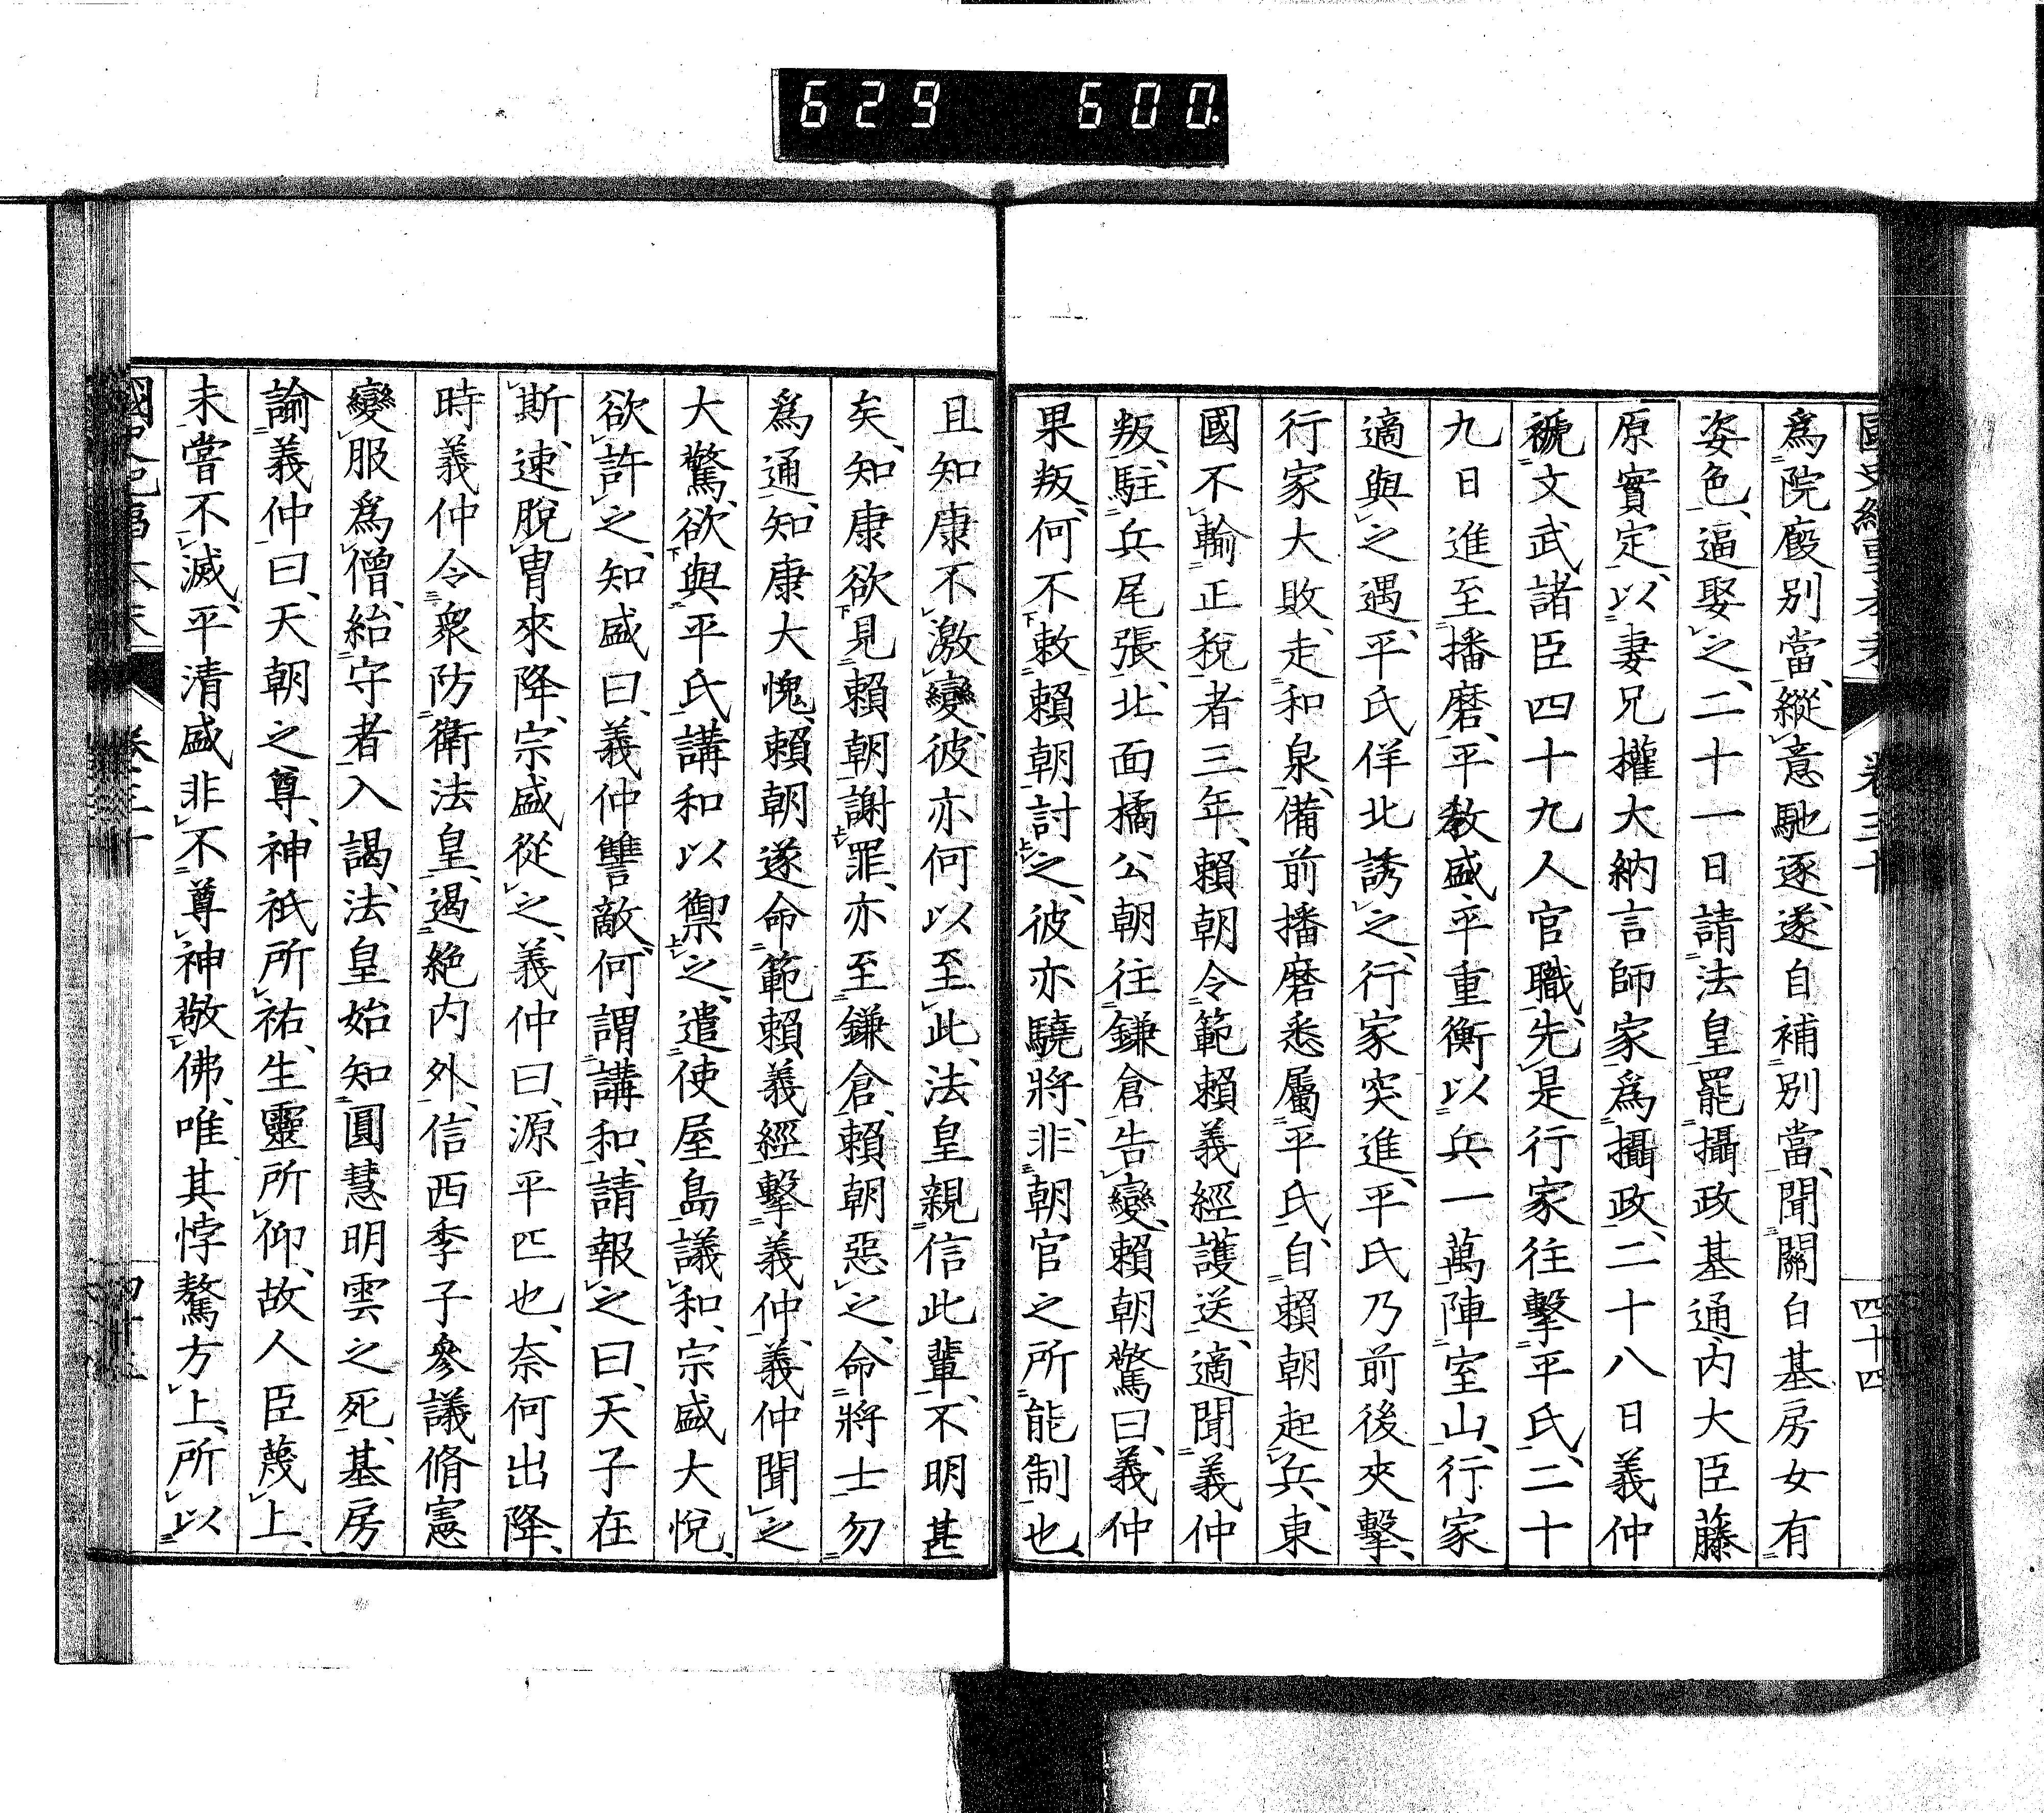 629 600.
卷三十 四十四
爲院廄別當、縱意馳逐、遂自補別當、聞關白基房女有
姿色、逼娶之、二十一日請法皇罷攝政基通、內大臣藤
原實定、以妻兄權大納言師家爲攝政、二十八日義仲
褫文武諸臣四十九人官職、先是行家往擊平氏、二十
九日進至播磨、平敎盛平重衡以兵一萬陣室山、行家
適與之遇、平氏佯北誘之、行家突進、平氏乃前後夾擊、
行家大敗、走和泉、備前播磨悉屬平氏、自賴朝起兵、東
國不輸正稅者三年、賴朝令範賴義經護送、適聞義仲
叛、駐兵尾張、北面橘公朝往鎌倉告變、賴朝驚曰、義仲
果叛、何不敕賴朝討之、彼亦驍將、非朝官之所能制也、
且知康不激變、彼亦何以至此、法皇親信此輩、不明甚
矣、知康欲見賴朝謝罪、亦至鎌倉、賴朝惡之、命將士勿
爲通、知康大愧、賴朝遂命範賴義經擊義仲、義仲聞之
大驚、欲與平氏講和以禦之、遣使屋島議和、宗盛大悅、
欲許之、知盛曰、義仲讐敵、何謂講和、請報之曰、天子在
斯、速脫冑來降、宗盛從之、義仲曰、源平匹也、奈何出降、
時義仲令衆防衛法皇、遏絕內外、信西季子參議脩憲
變服爲僧、紿守者入謁、法皇始知圓慧明雲之死、基房
諭義仲曰、天朝之尊、神祇所祐、生靈所仰、故人臣蔑上、
未嘗不滅、平清盛非不尊神敬佛、唯其悖驁方上、所以